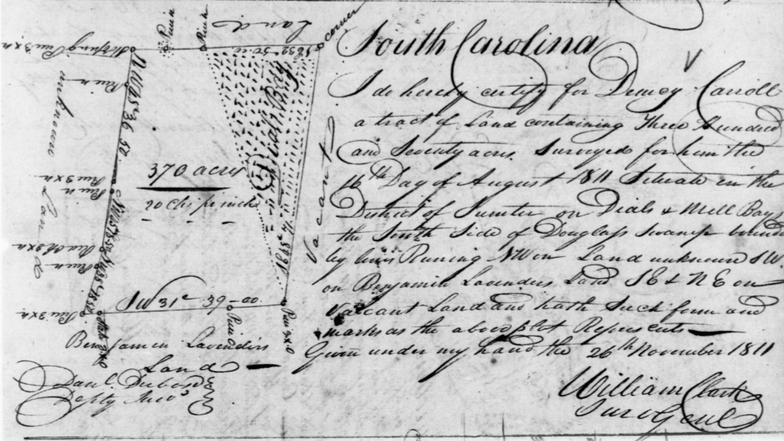 South Carolina
I do hereby certify for Dempsy Carroll
a tract of Land containing Three Hundred
and Seventy acres Surveyed for him the
16th Day of August 1811 Situate in the
District of Sumter on Dials & Mill Bay
the South Side of Douglass Swamp
by lines Runing NW on Land unknown SW
on Benjamin Lavenders Land SE & NE on
Vacant Land and hath Such form and
marks as the above plat Represents
Given under my hand the 26th November 1811
William Clark
Land
corner
Pine
Stopping Pine 3xn
unknown Land
370 acres
20 Ch pr inch
Dials Bay
Vacant
SW 31 39-00
Pine
Pine 3x0
Benjamin Lavenders
Land